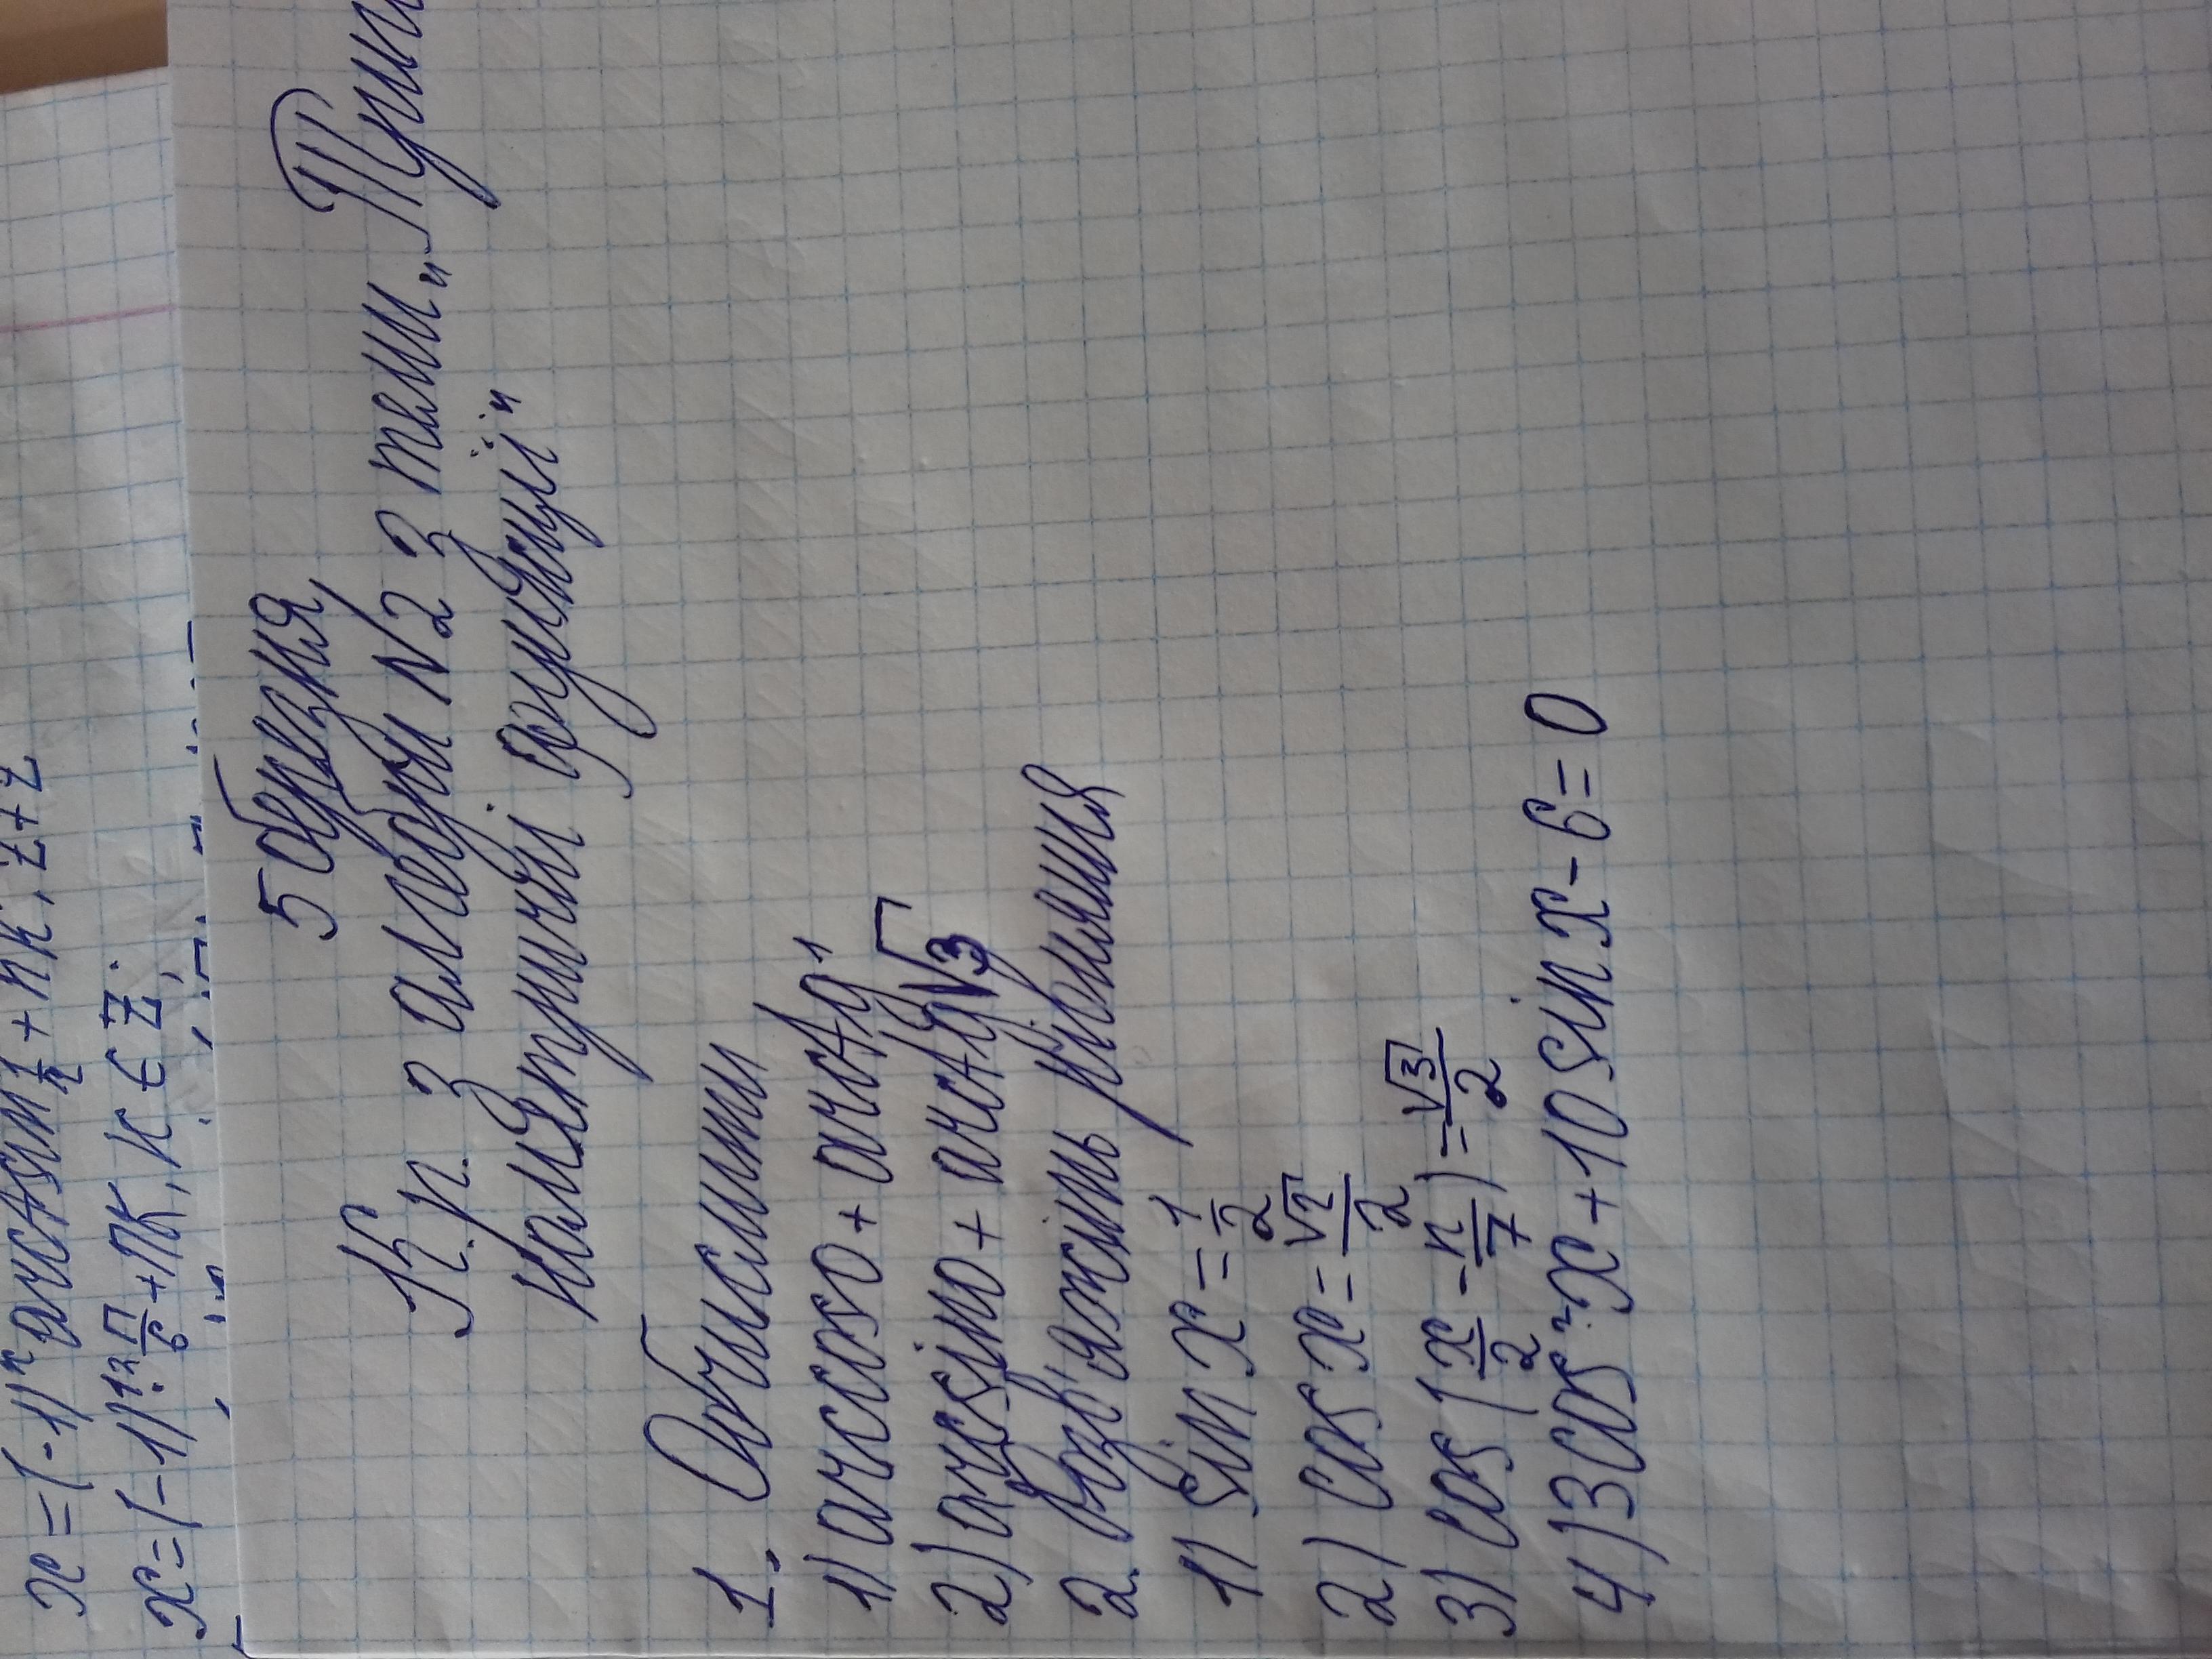 x = (-1)ⁿ arcsin 1/2 + πk, z + z
x = (-1)ⁿ · π/6 + πk, k ∈ Z;
5 березня
К.р. з алгебри №2 з теми „Триго
нометричні функції"
1. Обчислити
1) arccos0 + arctg1
2) arcsin0 + arctg√3
2. Розв'яжіть рівняння
1) sin x = 1/2
2) cos x = √2/2
3) cos (x/2 - π/7) = √3/2
4) 3cos²x + 10 sin x - 6 = 0